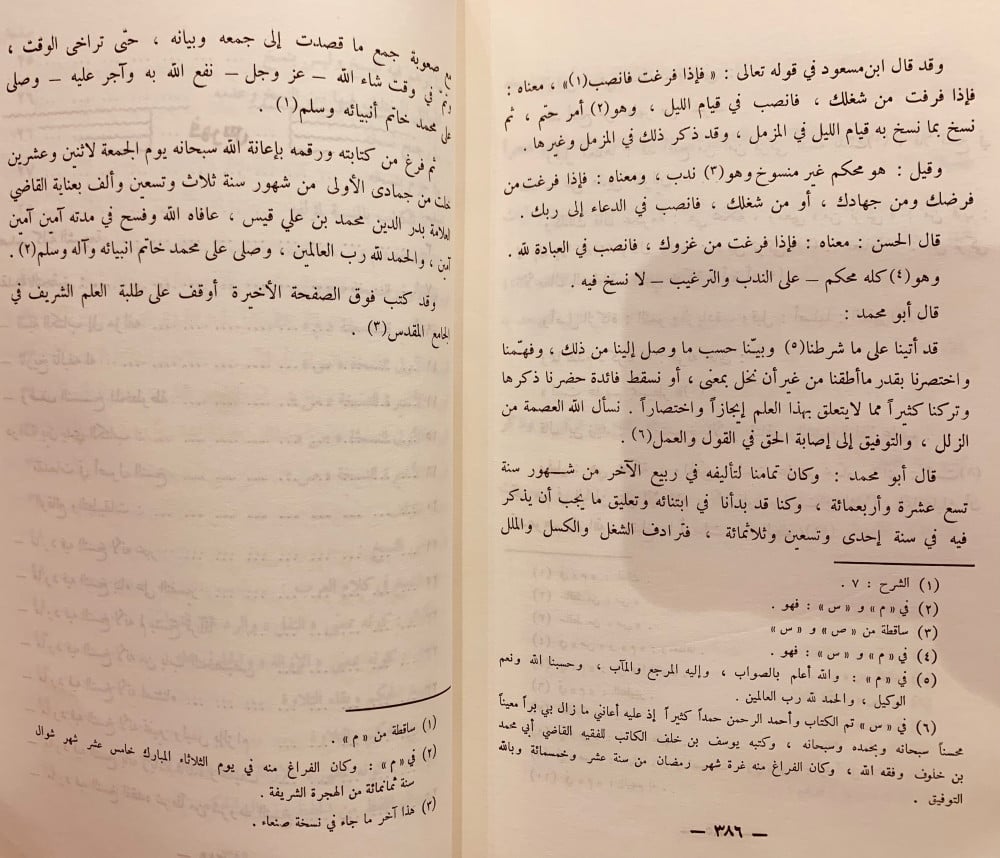 وقد قال ابن مسعود في قوله تعالى : « فإذا فرغت فانصب(١)» ، معناه :
فإذا فرغت من شغلك ، فانصب في قيام الليل ، وهو(٢) أمر حتم ، ثم
نسخ بما نسخ به قيام الليل في المزمل ، وقد ذكر ذلك في المزمل وغيرها .
وقيل : هو محكم غير منسوخ وهو(٣) ندب ، ومعناه : فإذا فرغت من
فرضك ومن جهادك ، أو من شغلك ، فانصب في الدعاء إلى ربك .
قال الحسن : معناه : فإذا فرغت من غزوك ، فانصب في العبادة لله .
وهو(٤) كله محكم – على الندب والترغيب – لا نسخ فيه .
قال أبو محمد :
قد أتينا على ما شرطنا(٥) وبيّنا حسب ما وصل إلينا من ذلك ، وفهّمنا
واختصرنا بقدر ما أطقنا من غير أن نخل بمعنى ، أو نسقط فائدة حضرنا ذكرها
وتركنا كثيراً مما لايتعلق بهذا العلم إيجازاً واختصاراً . نسأل الله العصمة من
الزلل ، والتوفيق إلى إصابة الحق في القول والعمل(٦) .
قال أبو محمد : وكان تمامنا لتأليفه في ربيع الآخر من شهور سنة
تسع عشرة وأربعمائة ، وكنا قد بدأنا في ابتنائه وتعليق ما يجب أن يذكر
فيه في سنة إحدى وتسعين وثلاثمائة ، فترادف الشغل والكسل والملل
(١) الشرح : ٧ .
(٢) في « م » و « س » : فهو .
(٣) ساقطة من « ص » و « س »
(٤) في « م » و « س » : فهو .
(٥) في « م » : والله أعلم بالصواب ، وإليه المرجع والمآب ، وحسبنا الله ونعم
الوكيل ، والحمد لله رب العالمين .
(٦) في « س » تم الكتاب وأحمد الرحمن حمداً كثيراً إذ عليه أعانني ما زال بي براً معيناً
محسناً سبحانه وبحمده وسبحانه ، وكتبه يوسف بن خلف الكاتب للفقيه القاضي أبي محمد
بن خلوف وفقه الله ، وكان الفراغ منه غرة شهر رمضان من سنة عشر وخمسمائة وبالله
التوفيق .
— ٣٨٦ —
مع صعوبة جمع ما قصدت إلى جمعه وبيانه ، حتّى تراخى الوقت ،
وتمّ في وقت شاء الله – عز وجل – نفع الله به وآجر عليه – وصلى
على محمد خاتم أنبيائه وسلم(١) .
ثم فرغ من كتابته ورقمه بإعانة الله سبحانه يوم الجمعة لاثنين وعشرين
خلت من جمادى الأولى من شهور سنة ثلاث وتسعين وألف بعناية القاضي
العلامة بدر الدين محمد بن علي قيس ، عافاه الله وفسح في مدته آمين آمين
آمين ، والحمد لله رب العالمين ، وصلى على محمد خاتم انبيائه وآله وسلم(٢) .
وقد كتب فوق الصفحة الأخيرة أوقف على طلبة العلم الشريف في
الجامع المقدس(٣) .
(١) ساقطة من « م » .
(٢) في « م » : وكان الفراغ منه في يوم الثلاثاء المبارك خامس عشر شهر شوال
سنة ثمانمائة من الهجرة الشريفة .
(٣) هذا آخر ما جاء في نسخة صنعاء .